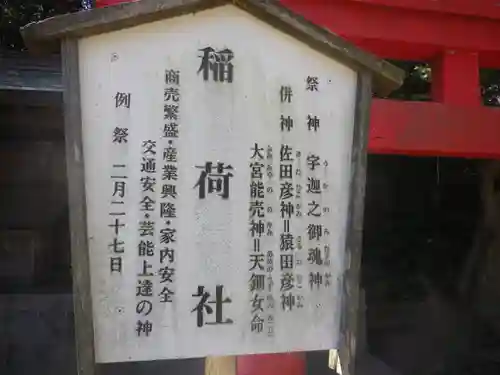 祭神 宇迦之御魂神
併神 佐田彦神＝猿田彦神
大宮能売神＝天鈿女命
稲荷社
商売繁盛・産業興隆・家内安全
交通安全・芸能上達の神
例祭 二月二十七日